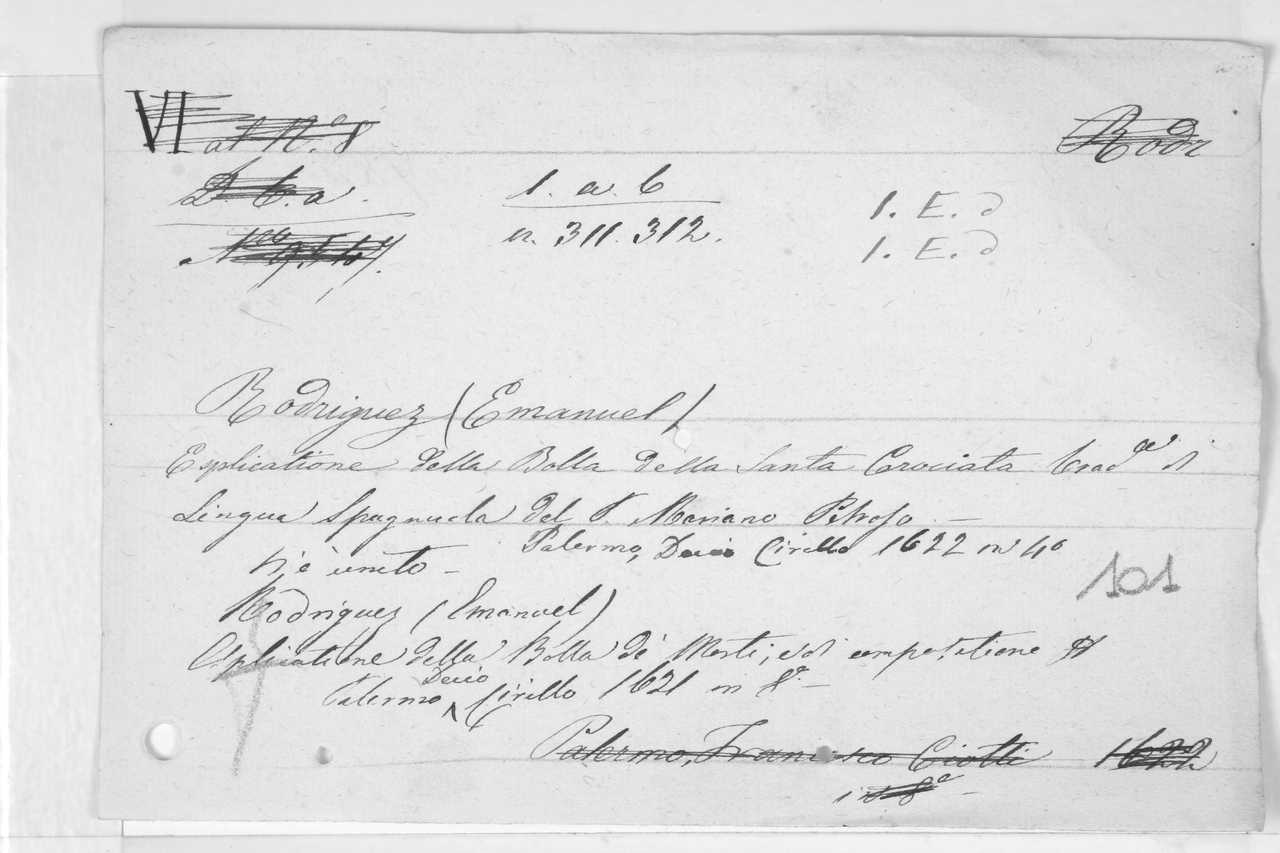 VI al N.º 8
Rodr
D. b. a.
1. a. b
1. E. d
n. 311. 312.
1. E. d
Rodriguez (Emanuel)
Esplicatione della Bolla della Santa Crociata trad.ª di
Lingua Spagnuola del P. Mariano
Palermo, Decio Cirillo 1622 in 4º
Vi è unito
101
Rodriguez (Emanuel)
Esplicatione della Bolla de' Morti, e di compositione
Palermo Decio Cirillo 1621 in 8.º
Palermo, Francesco Ciotti 1622
in 8º